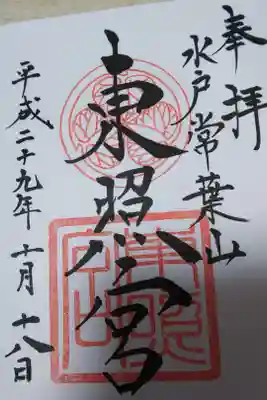 奉拝
水戸常葉山
東照公宮
平成二十九年十月十八日